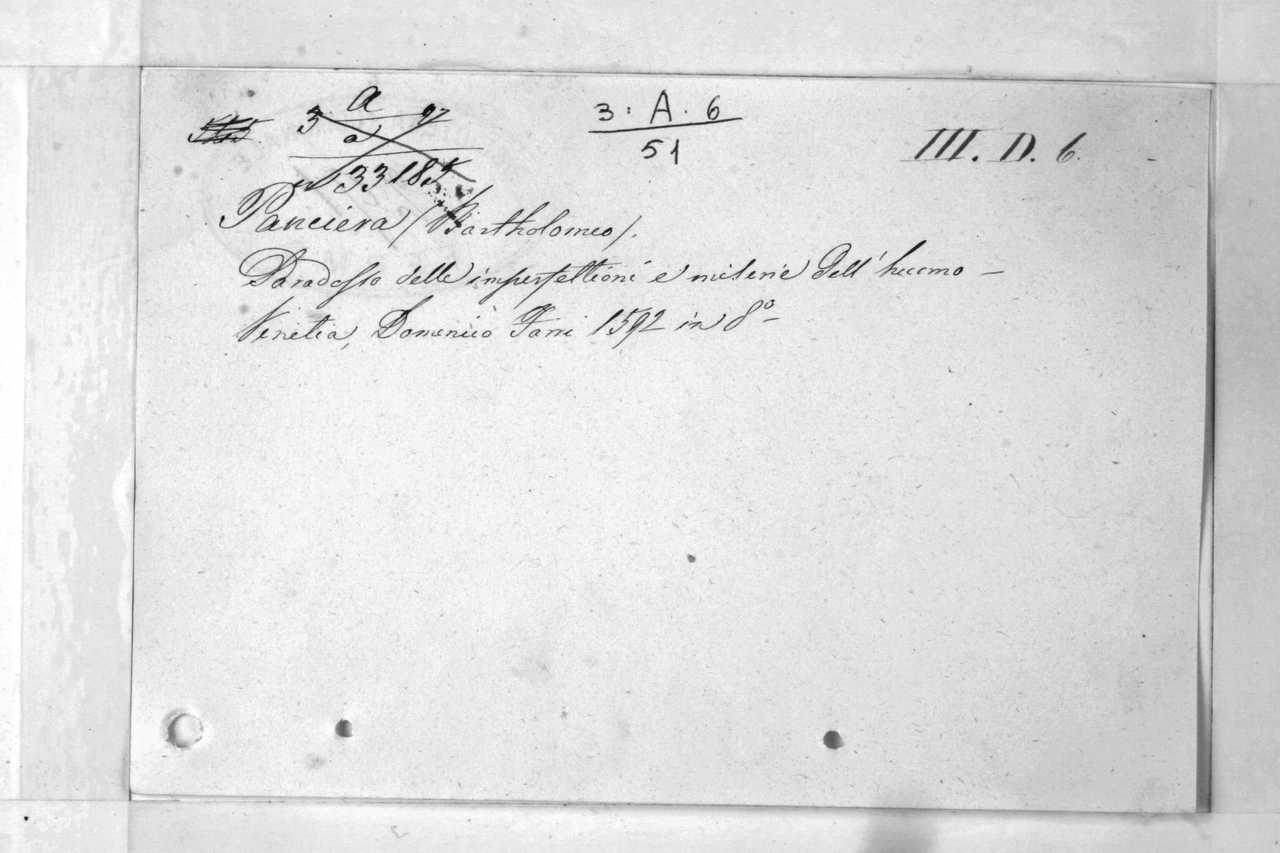 3 A 97
a
3 : A . 6
51
III. D. 6.
33185
Panciera (Bartholomeo).
Paradosso delle imperfettioni e miserie dell'huomo –
Venetia, Domenico Farri 1592 in 8º –